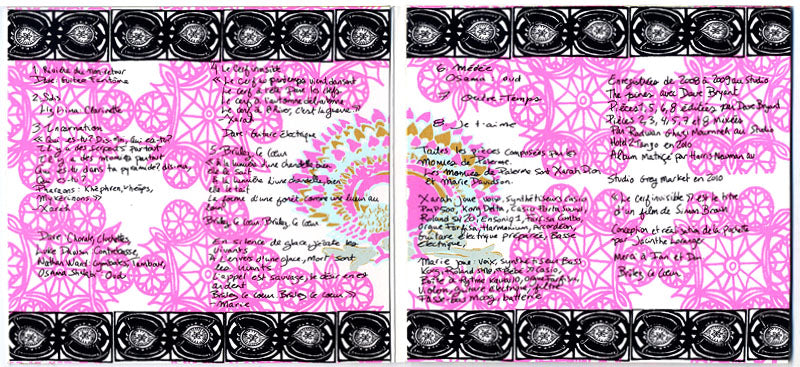 1. Rivière du non-retour
Dave: Guitare Fantôme
2. Sdj
Lisa: Clarinette
3. Incarnation
« Qui es-tu? Dis-moi, Qui es-tu?
Il y a des serpents partout
Il y a des morts partout
Qui es-tu dans ta pyramide? dis-moi,
Qui es-tu?
Pharaons: Khéphren, Khéops,
Mykerinos »
- Xarah
Dave: Chorale, clochettes,
Contrebasse,
Nathan Ward: Cymbales, Tambour,
Osama Shalabi: Oud
4. Le Cerf invisible
« Le Cerf au printemps vient dansant
Le cerf à l'été dans les
Le cerf à l'automne
Le cerf à l'hiver, c'est la guerre »
- Xarah
Dave: Guitare électrique
5. Brûlez Ce Coeur
« À la lumière d'une chandelle, bien
elle le sait
À la lumière d'une chandelle, bien
elle le tait
La forme d'une forêt comme une lueur au
Brûlez ce Coeur, Brûlez ce Coeur
En silence de glace je jète les
vivants
À l'envers d'une glace, mort sont
les vivants
L'appel est sauvage, le désir en est
ardent
Brûlez ce Coeur Brûlez ce Coeur »
- Marie
6. Médée
Osama: oud
7. Outre-Temps
8. Je t'aime
Toutes les pièces composées par les
Momies de Palerme.
Les Momies de Palerme sont Xarah Dion
et Marie Davidson.
Xarah joue: voix, Synthétiseurs casio
PMP500, Korg Delta, Casio Portasound,
Roland SH 20, Ensoniq 1, Farfisa Combo
Orgue Farfisa, Harmonium, Accordéon,
Guitare électrique préparée, Basse
électrique,
Marie joue: voix, Synthétiseur Bass
Korg, Roland « Bébé » Casio,
Boîte à Rythme Yamaha, orgue Farfisa,
Violon, guitare électrique, filtre
Passe-bas moog, batterie
Enregistrées de 2008 à 2009 au Studio
The Pines avec Dave Bryant
Pièces 1, 5, 6, 8 mixées par Dave Bryant
Pièces 2, 3, 4, 5, 7 et 8 Mixées
Par Radwan Ghazi Moumneh au Studio
Hotel 2 Tango en 2010
Album Matricé par Harris Newman au
Studio Grey Market en 2010
« Le Cerf invisible » est le titre
d'un film de Simon Brown
Conception et réalisation de la pochette
par Jacinthe Loranger
Merci à Ian et Don
Brûlez ce Coeur